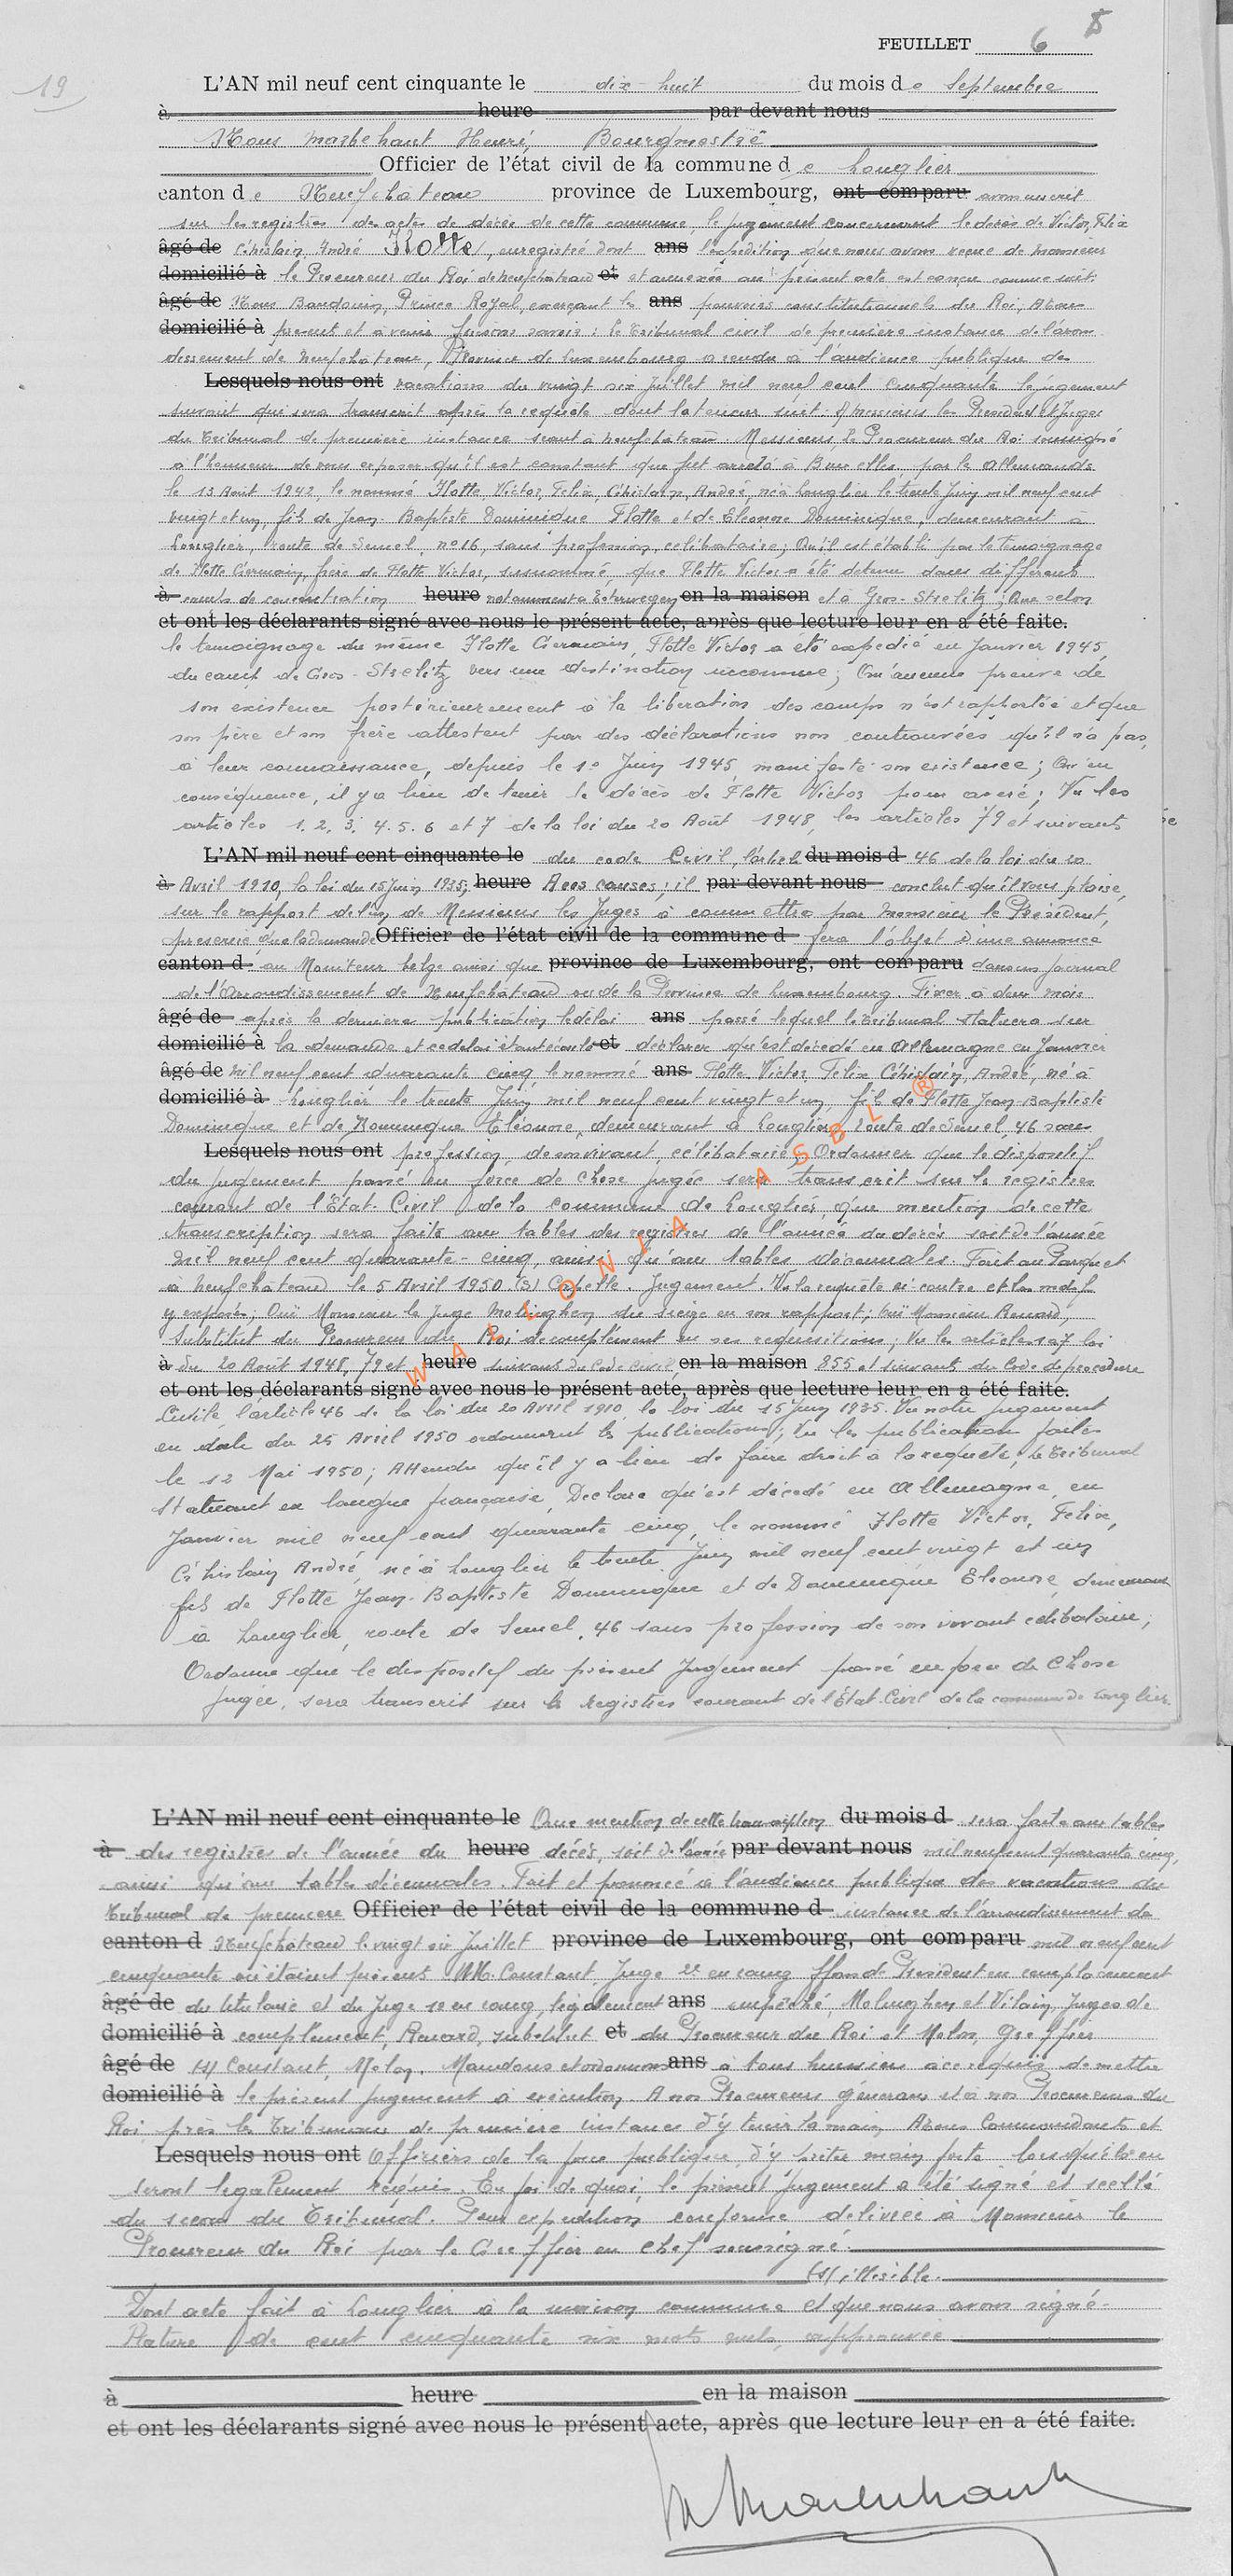 FEUILLET 6 5
19
L'AN mil neuf cent cinquante le dix-huit du mois de Septembre
à heure par devant nous
Nous Marbehant Henri, Bourgmestre
Officier de l'état civil de la commune de Longlier
canton de Neufchâteau province de Luxembourg, ont comparu avons inscrit
sur les registres des actes de décès de cette commune, le jugement concernant le décès de Victor, Félix
âgé de Ghislain, André Flotte, enregistré dont ans l'expédition que nous avons reçue de monsieur
domicilié à le Procureur du Roi de Neufchâteau et et annexée au présent acte est conçue comme suit:
âgé de Nous Baudouin, Prince Royal, exerçant les ans pouvoirs constitutionnels du Roi, A tous
domicilié à présent et à venir faisons savoir: le tribunal civil de première instance de l'arron
dissement de Neufchâteau, Province de Luxembourg a rendu à l'audience publique des
Lesquels nous ont vacations du vingt six Juillet mil neuf cent cinquante le jugement
suivant qui sera transcrit après la requête dont la teneur suit: A messieurs les Président et Juges
du tribunal de première instance séant à Neufchâteau. Messieurs, le Procureur du Roi soussigné
à l'honneur de vous exposer qu'il est constant que fut arrêté à Bruxelles par les Allemands
le 13 Août 1942, le nommé Flotte, Victor, Felix, Ghislain, André, né à Longlier le trente Juin mil neuf cent
vingt et un, fils de Jean-Baptiste Dominique Flotte et de Eléonore Dominique, demeurant à
Longlier, route de Semel, n° 16, sans profession, célibataire; Qu'il est établi par le témoignage
de Flotte Germain, frère de Flotte Victor, susnommé, que Flotte Victor a été détenu dans différents
à camps de concentration heure notamment a Esterwegen en la maison et à Gros-Strelitz; Que selon
et ont les déclarants signé avec nous le présent acte, après que lecture leur en a été faite.
le témoignage du même Flotte Germain, Flotte Victor a été expédié en Janvier 1945,
du camp de Gros-Strelitz vers une destination inconnue; Qu'aucune preuve de
son existence postérieurement à la libération des camps n'est rapportée et que
son père et son frère attestent par des déclarations non controuvées qu'il n'a pas,
à leur connaissance, depuis le 1° Juin 1945, manifesté son existence; Qu'en
conséquence, il y a lieu de tenir le décès de Flotte Victor pour avéré; Vu les
articles 1. 2. 3. 4. 5. 6 et 7 de la loi du 20 Août 1948, les articles 79 et suivants
L'AN mil neuf cent cinquante le du code Civil, l'article du mois d 46 de la loi du 20
à Avril 1910, la loi du 15 Juin 1935; heure A ces causes; il par devant nous conclut qu'il vous plaise,
sur le rapport de l'un de Messieurs les Juges à commettre par Monsieur le Président,
prescrire que la demande Officier de l'état civil de la commune d fera l'objet d'une annonce
canton d au Moniteur belge ainsi que province de Luxembourg, ont comparu dans un journal
de l'Arrondissement de Neufchâteau ou de la Province de Luxembourg. Fixer à deux mois
âgé de après la dernière publication le délai ans passé lequel le tribunal statuera sur
domicilié à la demande et ce délai étant écoulé et déclarer qu'est décédé en Allemagne en Janvier
âgé de mil neuf cent quarante cinq le nommé ans Flotte, Victor, Felix, Ghislain, André, né à
domicilié à Longlier le trente Juin mil neuf cent vingt et un, fils de Flotte Jean-Baptiste
Dominique et de Dominique Eléonore, demeurant à Longlier, route de Semel, 46 sans
Lesquels nous ont profession, de son vivant, célibataire; Ordonner que le dispositif
du jugement passé en force de chose jugée sera transcrit sur le registre
courant de l'Etat-Civil de la commune de Longlier, que mention de cette
transcription sera faite aux tables des registres de l'année du décès soit de l'année
mil neuf cent quarante-cinq, ainsi qu'aux tables décennales. Fait au Parquet
à Neufchâteau le 5 Avril 1950 (s) Capelle. Jugement. Vu la requête ci contre et les motifs
y exposés; Ouï Monsieur le Juge Molinghen du siège en son rapport; Ouï Monsieur Renard,
substitut du Procureur du Roi de complément en ses réquisitions; Vu les articles 1 à 7 loi
à du 20 Août 1948, 79 et heure suivants du Code civil, en la maison 855 et suivants du Code de procédure
et ont les déclarants signé avec nous le présent acte, après que lecture leur en a été faite.
Civile l'article 46 de la loi du 20 Avril 1910, la loi du 15 Juin 1935. Vu notre jugement
en date du 25 Avril 1950 ordonnant les publications; Vu les publications faites
le 12 Mai 1950; Attendu qu'il y a lieu de faire droit à la requête; Le Tribunal
Statuant en langue française, Déclare qu'est décédé en Allemagne, en
Janvier mil neuf cent quarante cinq, le nommé Flotte Victor, Felix,
Ghislain André, né à Longlier le trente Juin mil neuf cent vingt et un
fils de Flotte Jean-Baptiste Dominique et de Dominique Eléonore, demeurant
à Longlier, route de Semel, 46 sans profession de son vivant célibataire;
Ordonne que le dispositif du présent Jugement passé en force de Chose
Jugée, sera transcrit sur le registre courant de l'Etat-Civil de la commune de Longlier.
WALLONIA ASBL ®
L'AN mil neuf cent cinquante le Que mention de cette transcription du mois d sera faite aux tables
à des registres de l'année du heure décès, soit de l'année par devant nous mil neuf cent quarante cinq,
ainsi qu'aux tables décennales. Fait et prononcé à l'audience publique des vacations du
tribunal de première Officier de l'état civil de la commune d instance de l'arrondissement de
canton d Neufchâteau le vingt six Juillet province de Luxembourg, ont comparu mil neuf cent
cinquante où étaient présents MM. Constant, Juge 2e en rang ffons de Président en remplacement
âgé de du titulaire et du Juge 1e en rang, légalement ans empêché, Molinghen et Vilain, Juges de
domicilié à complément, Renard, substitut et du Procureur du Roi et Melon, Greffier
âgé de (s) Constant, Melon. Mandons et ordonnons ans à tous huissiers à ce requis de mettre
domicilié à le présent jugement à exécution A nos Procureurs généraux et à nos Procureurs du
Roi, près les tribunaux de première instance d'y tenir la main, A tous Commandants et
Lesquels nous ont Officiers de la force publique, d'y prêter main forte lorsqu'ils en
seront légalement requis. En foi de quoi, le présent jugement a été signé et scellé
du sceau du Tribunal. Pour expédition conforme délivrée à Monsieur le
Procureur du Roi par le Greffier en chef soussigné.
(s) illisible.
Dont acte fait à Longlier à la maison commune et que nous avons signé.
Rature de cent cinquante six mots nuls, approuvée
à heure en la maison
et ont les déclarants signé avec nous le présent acte, après que lecture leur en a été faite.